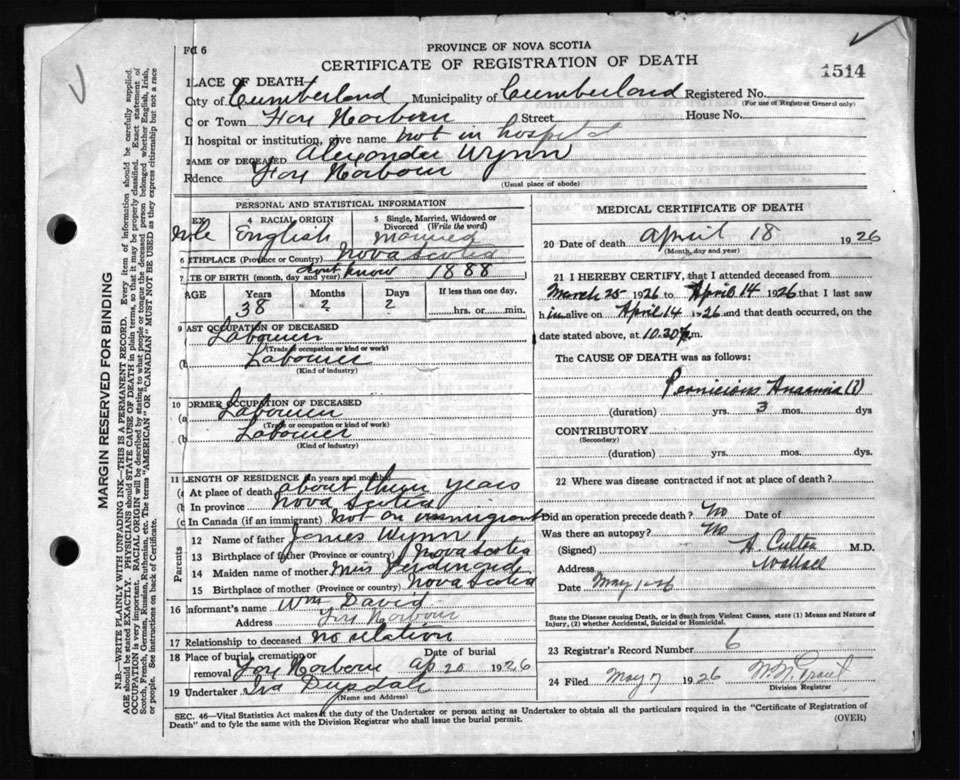 FC 6
PROVINCE OF NOVA SCOTIA
CERTIFICATE OF REGISTRATION OF DEATH
1514
1 LACE OF DEATH
City of Cumberland Municipality of Cumberland Registered No.
(For use of Registrar General only)
C or Town Fox Harbour Street House No.
If hospital or institution, give name not in hospital
2 AME OF DECEASED Alexander Wynn
R dence Fox Harbour
(Usual place of abode)
PERSONAL AND STATISTICAL INFORMATION
EX 4 RACIAL ORIGIN 5 Single, Married, Widowed or Divorced (Write the word)
Male English Married
6 RTHPLACE (Province or Country) Nova Scotia
7 TE OF BIRTH (month, day and year) dont know 1888
AGE Years Months Days If less than one day,
38 2 2 hrs. or min.
9 AST OCCUPATION OF DECEASED
Labourer
(Trade or occupation or kind or work)
(b Labourer
(Kind of industry)
10 ORMER OCCUPATION OF DECEASED
(a Labourer
(Trade or occupation or kind or work)
(b Labourer
(Kind of industry)
11 LENGTH OF RESIDENCE (in years and months)
(a At place of death about years
(b In province Nova Scotia
(c In Canada (if an immigrant) not an immigrant
Parents
12 Name of father James Wynn
13 Birthplace of father (Province or country) Nova Scotia
14 Maiden name of mother Miss
15 Birthplace of mother (Province or country) Nova Scotia
16 Informant's name Wm David
Address Fox Harbour
17 Relationship to deceased no relation
18 Place of burial, cremation or removal Fox Harbour Date of burial Ap 20 1926
19 Undertaker Ira
(Name and Address)
MEDICAL CERTIFICATE OF DEATH
20 Date of death April 18 1926
(Month, day and year)
21 I HEREBY CERTIFY, that I attended deceased from
March 25 1926 to April 14 1926 that I last saw
h im alive on April 14 1926 and that death occurred, on the
date stated above, at 10.30 p.m.
The CAUSE OF DEATH was as follows:
Pernicious Anaemia (?)
(duration) yrs. 3 mos. dys
CONTRIBUTORY
(Secondary)
(duration) yrs. mos. dys.
22 Where was disease contracted if not at place of death?
Did an operation precede death? No Date of
Was there an autopsy? No
(Signed) M.D.
Address Wallace
Date May 1-26
State the Disease causing Death, or in death from Violent Causes, state (1) Means and Nature of
Injury, (2) whether Accidental, Suicidal or Homicidal.
23 Registrar's Record Number 6
24 Filed May 7 1926
Division Registrar
SEC. 46—Vital Statistics Act makes it the duty of the Undertaker or person acting as Undertaker to obtain all the particulars required in the "Certificate of Registration of
Death" and to fyle the same with the Division Registrar who shall issue the burial permit. (OVER)
MARGIN RESERVED FOR BINDING
N.B.—WRITE PLAINLY WITH UNFADING INK—THIS IS A PERMANENT RECORD. Every item of information should be carefully supplied.
AGE should be stated EXACTLY. PHYSICIANS should STATE CAUSE OF DEATH in plain terms, so that it may be properly classified. Exact statement of
OCCUPATION is very important. RACIAL ORIGIN will be described by stating to what people or tongue the deceased person belonged whether English, Irish,
Scotch, French, German, Russian, Ruthenian, etc. The terms "AMERICAN" OR "CANADIAN" MUST NOT BE USED as they express citizenship but not a race
or people. See instructions on back of Certificate.